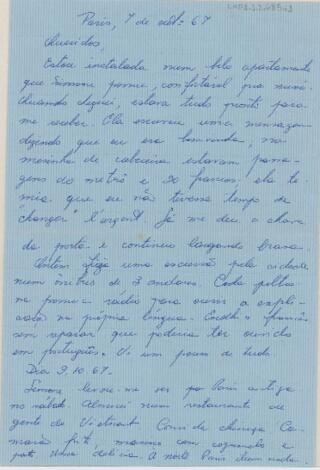 Paris, 7 de out. 67
Queridos,
Estou instalada num belo apartamento
que Simone possui, confortável
Quando cheguei, estava tudo pronto para
me receber. Ela escreveu uma mensagem
dizendo que eu era bemvinda, na
mesinha de cabeceira estavam passa-
gens do metrô e 20 francos: ela te-
mia que eu não tivesse tempo de
"changer" l'argent. Já me deu a chave
da porta e continuo largando brasa.
Ontem fiz uma excursão pela cidade
num ônibus de 2 andares. Cada poltro-
na possui radio para ouvir a expli-
cação na própria língua. Escolhi o francês
sem reparar que poderia ter ouvido
em português. Vi um pouco de tudo.
Dia 9.10.67.
Simone levou-me ver por Paris antiga
no sábado. Almocei num restaurante de
gente do Vietnat. Comi de chinesa Ca-
marão frito, macarrão com cogumelos e
pato uma delicia. A noite Paris ilumiada.